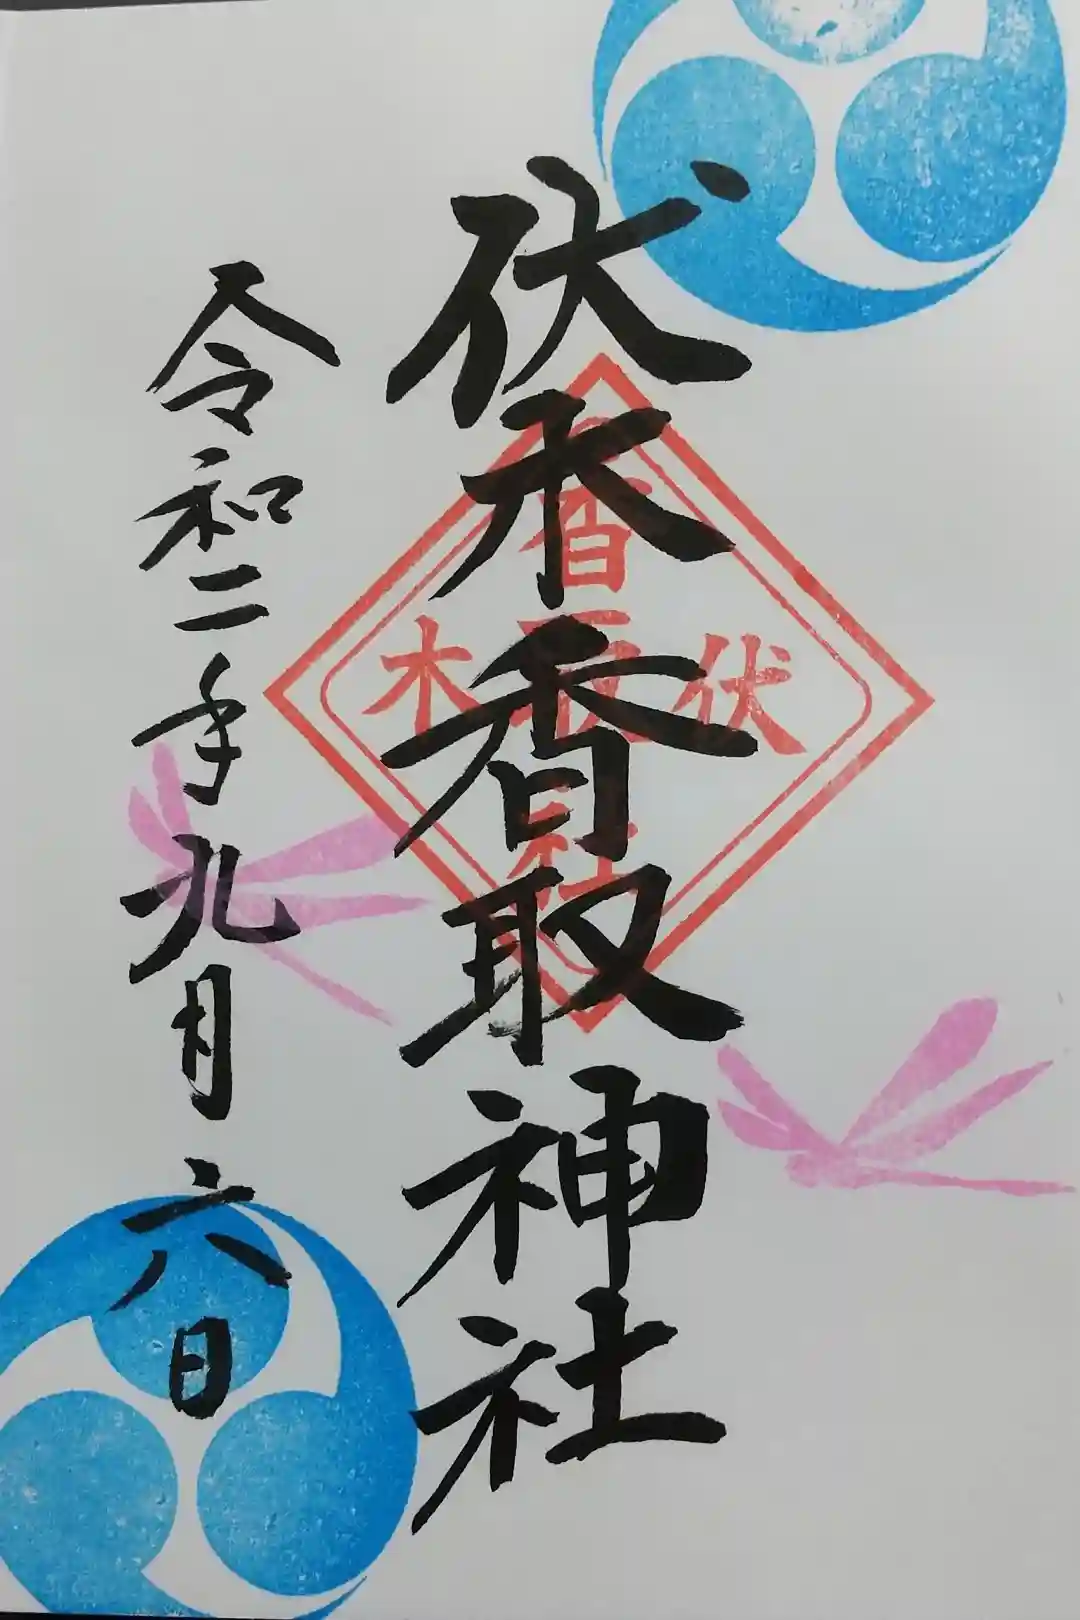 伏木香取神社
令和二年九月六日
香取
伏
木
社